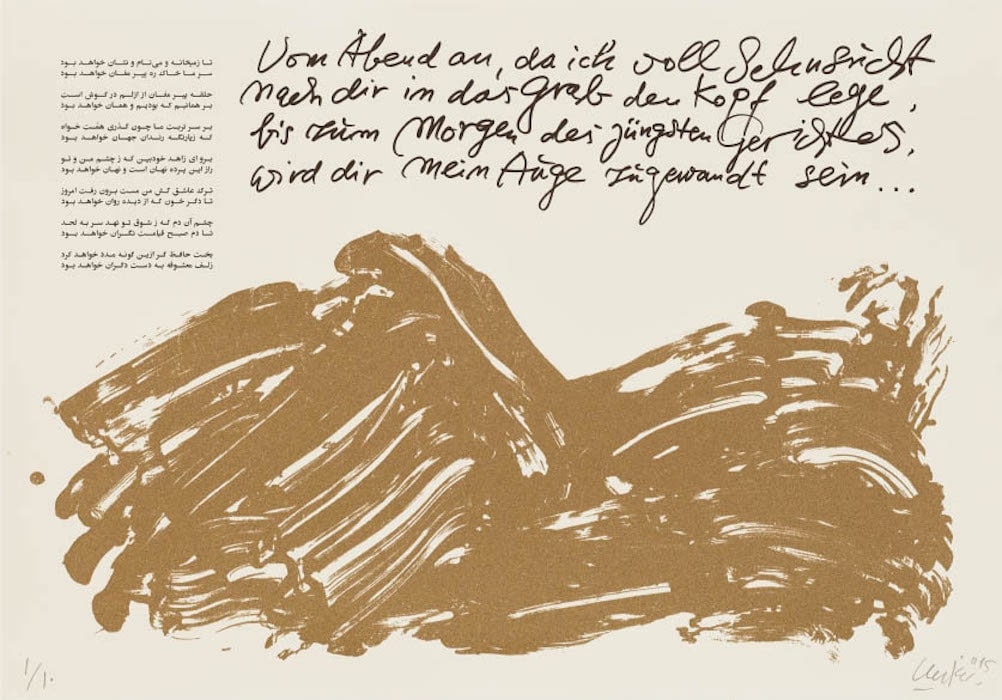 تا ز میخانه و می نام و نشان خواهد بود
سر ما خاک ره پیر مغان خواهد بود
حلقه پیر مغان از ازلم در گوش است
بر همانیم که بودیم و همان خواهد بود
بر سر تربت ما چون گذری همت خواه
که زیارتگه رندان جهان خواهد بود
برو ای زاهد خودبین که ز چشم من و تو
راز این پرده نهان است و نهان خواهد بود
ترک عاشق کش من مست برون رفت امروز
تا دگر خون که از دیده روان خواهد بود
چشم آن دم که ز شوق تو نهد سر به لحد
تا دم صبح قیامت نگران خواهد بود
بخت حافظ گر ازین گونه مدد خواهد کرد
زلف معشوقه به دست دگران خواهد بود
Vom Abend an, da ich voll Sehnsucht
nach dir in das Grab den Kopf lege,
bis zum Morgen des jüngsten Gerichtes,
wird dir mein Auge zugewandt sein...
1/10.
Uecker '15